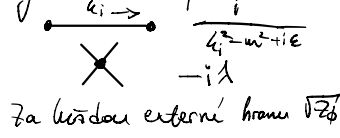 k_i → i
k_i² - m² + iε
-iλ
Za každou externí hranu √Z_ϕ